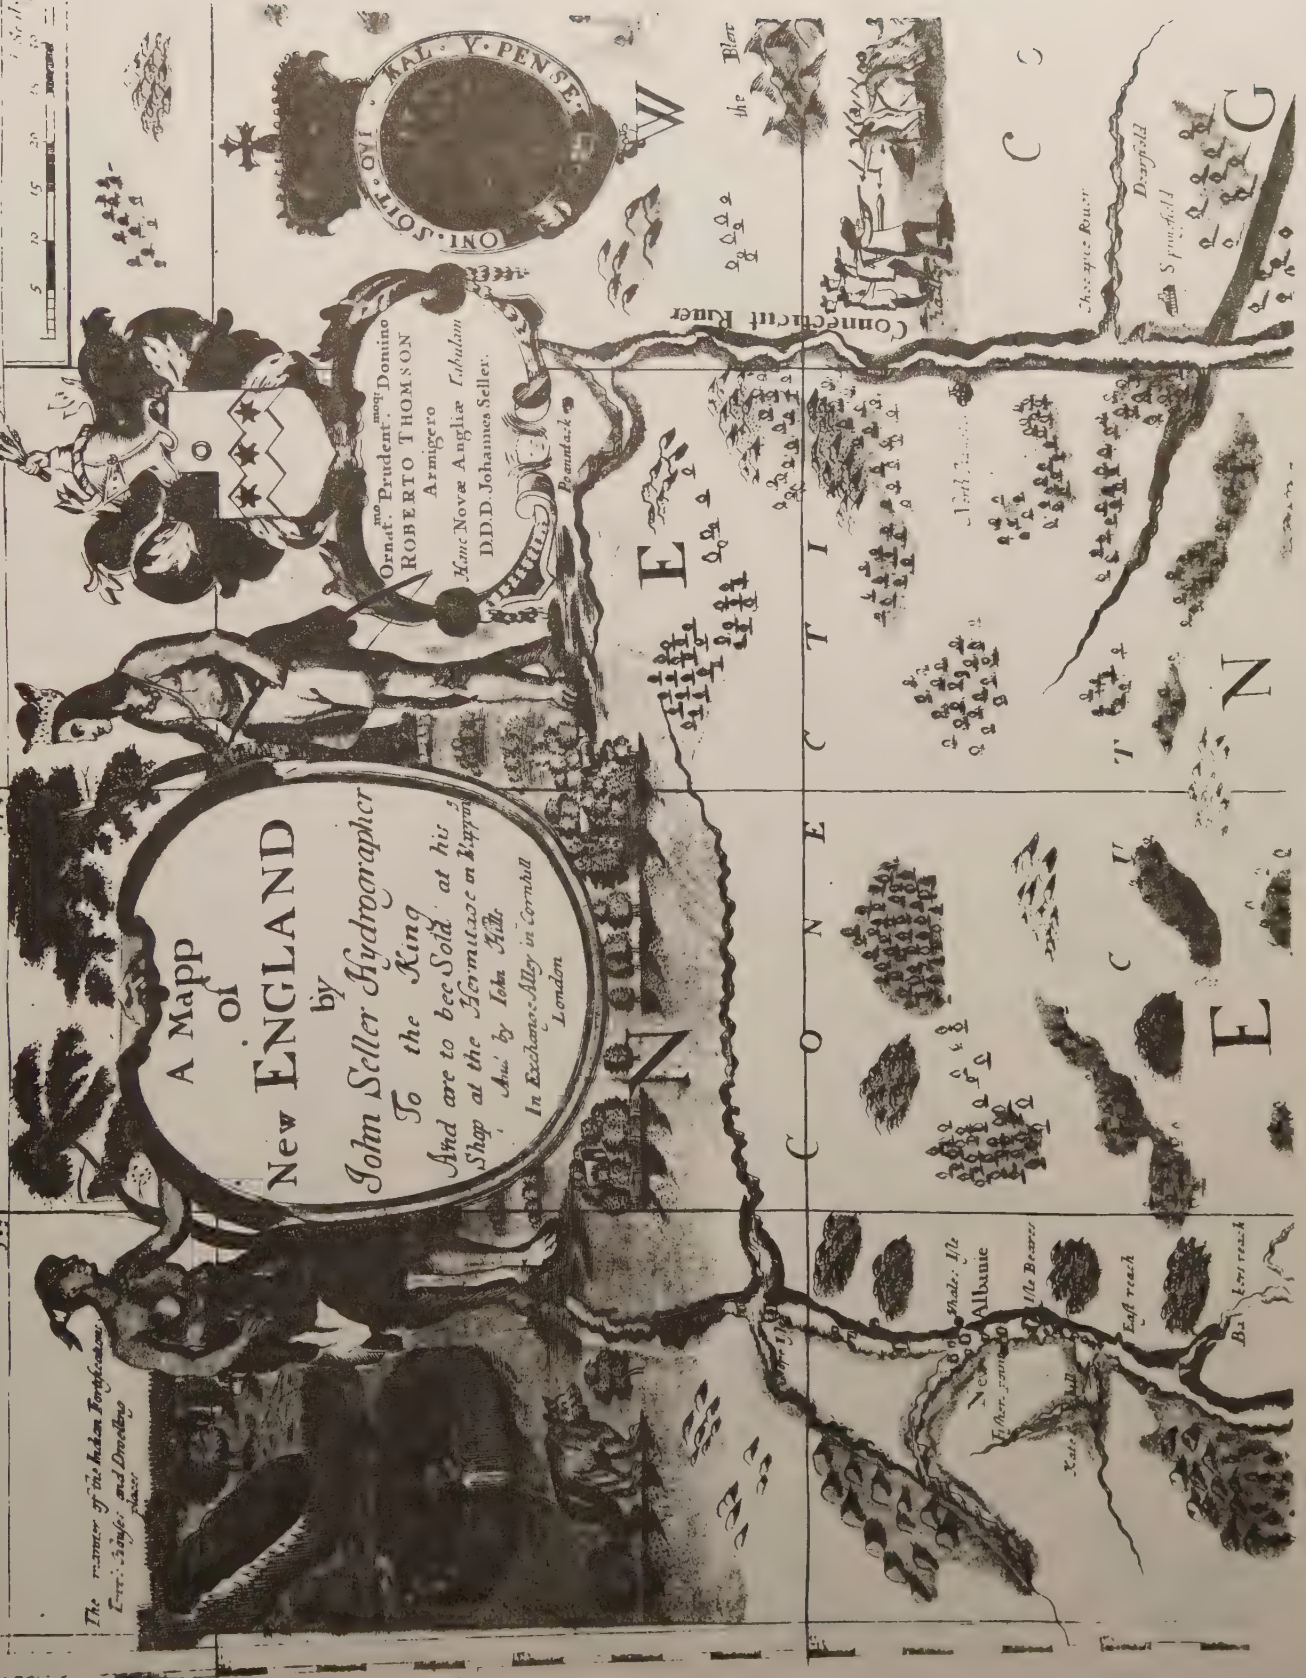 The manner of the Indian Fortifications
Houses and Dwelling
places
A Mapp
of
New ENGLAND
by
John Seller Hydrographer
To the King
And are to bee Sold at his
Shop at the Hermitage in Wapping
And by Iohn Hills
In Exchange-Alley in Cornhill
London
Ornat.mo Prudent.moq: Domino
ROBERTO THOMSON
Armigero
Hanc Novæ Angliæ Tabulam
D.D.D. Johannes Seller.
ONI · SOIT · QVI · MAL · Y · PENSE
5 10 15 20
Poanntack
N E W
Connecticut River
the
CONECTICUT
Deerfield
Springfield
New Albanie
Isle Beares
East reach
reach
E N G
C U T
C O